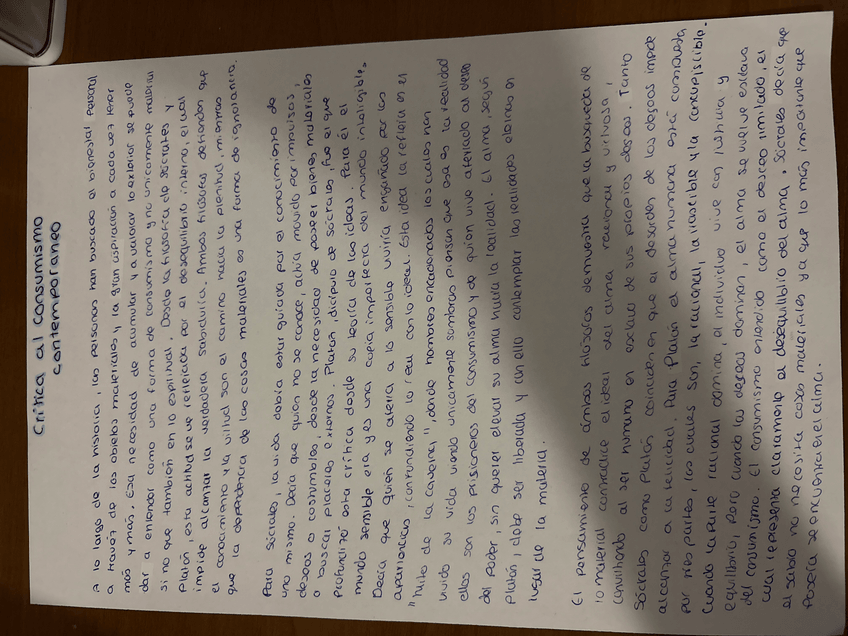 Crítica al consumismo
contemporáneo
A lo largo de la historia, las personas han buscado el bienestar personal
a través de los objetos materiales y la gran aspiración a cada vez tener
más y más. Esa necesidad de acumular y a valorar lo exterior se puede
dar a entender como una forma de consumismo y no unicamente material
si no que también en lo espiritual. Desde la filosofía de Sócrates y
Platón, esta actitud se ve reflejada por el desequilibrio interno, el cual
impide alcanzar la verdadera sabiduría. Ambos filósofos defienden que
el conocimiento y la virtud son el camino hacia la plenitud, mientras
que la dependencia de las cosas materiales es una forma de ignorancia.
Para Sócrates, la vida debía estar guiada por el conocimiento de
uno mismo. Decía que quién no se conoce, actúa movido por impulsos,
deseos o costumbres, desde la necesidad de poseer bienes materiales
o buscar placeres externos. Platón, discípulo de Sócrates, fue el que
profundizó esta crítica desde su teoría de las ideas. Para él el
mundo sensible era y es una copia imperfecta del mundo inteligible.
Decía que quién se aferra a lo sensible viviría engañado por las
apariencias, confundiendo lo real con lo ideal. Esta idea la refleja en el
"mito de la caverna", donde hombres encadenados los cuales han
vivido su vida viendo unicamente sombras piensan que esa es la realidad
ellos son los prisioneros del consumismo y de quién vive aferrado al deseo
del poder, sin querer elevar su alma hacia la realidad. El alma, según
Platón, debe ser liberada y con ello contemplar las realidades eternas en
lugar de la materia.
El pensamiento de ámbos filósofos demuestra que la búsqueda de
lo material contradice el ideal del alma racional y virtuosa,
convirtiendo al ser humano en esclavo de sus propios deseos. Tanto
Sócrates como Platón coinciden en que el desorden de los deseos impide
alcanzar a la felicidad. Para Platón el alma humana está compuesta
por tres partes, las cuales son, la racional, la irascible y la concupiscible.
Cuando la parte racional domina, el individuo vive con justicia y
equilibrio, pero cuando los deseos dominan, el alma se vuelve esclava
del consumismo. El consumismo entendido como el deseo ilimitado, el
cual representa claramente el desequilibrio del alma. Sócrates decía que
el sabio no necesita cosas materiales ya que lo más importante que
poseía se encuentra en el alma.